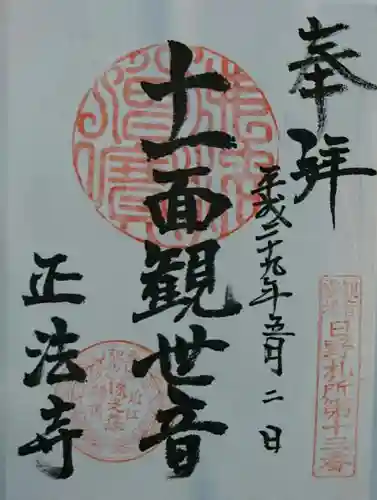 奉拝
平成二十九年五月二日
日野札所第十三番
十一面観世音
正法寺